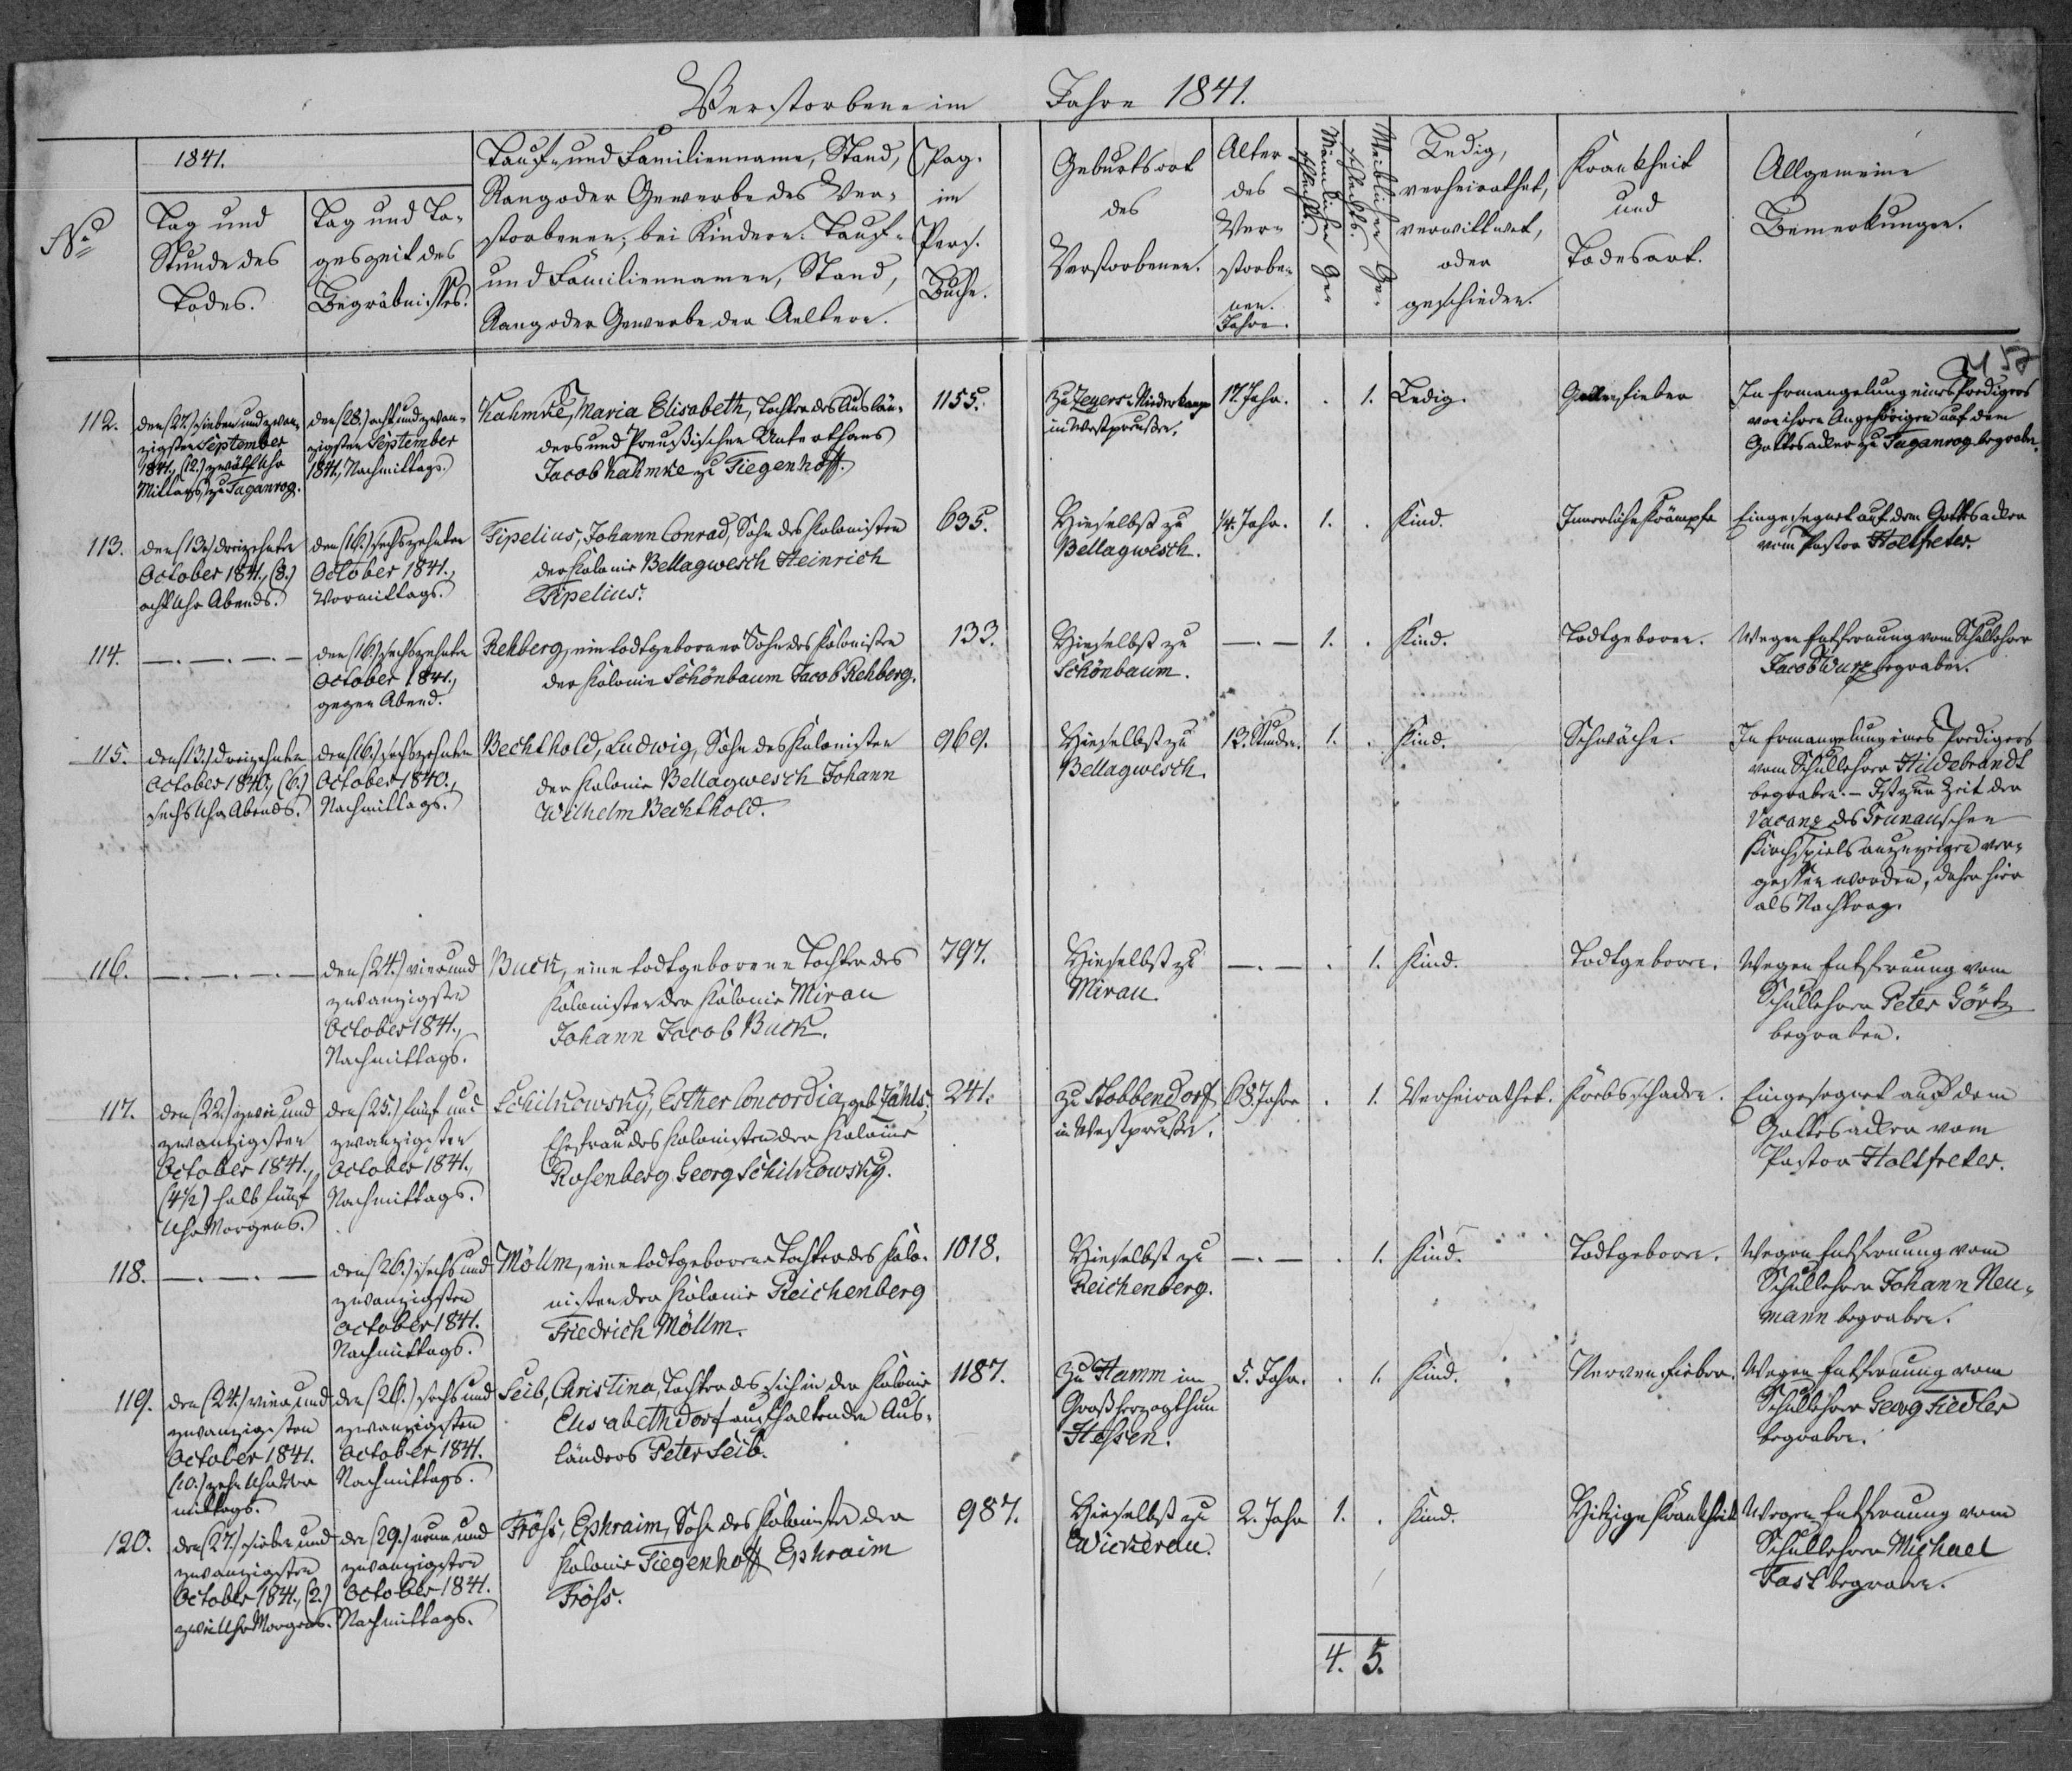 Verstorbene im Jahre 1841.
No
1841.
Tag und
Stunde des
Todes.
Tag und Ta-
geszeit des
Begräbnisses.
Tauf- und Familienname, Stand,
Rang oder Gewerbe des Ver-
storbenen; bei Kindern: Tauf-
und Familiennamen, Stand,
Rang oder Gewerbe der Aeltern.
Pag.
im
Pers.
Buche.
Geburtsort
des
Verstorbenen.
Alter
des
Ver-
storbe-
nen.
Jahre.
Männlichen Ge-
schlechts.
Weiblichen Ge-
schlechts.
Ledig,
verheirathet,
verwittwet,
oder
geschieden.
Krankheit
und
Todesart.
Allgemeine
Bemerkungen.
112.
den (27.) sieben und zwan-
zigsten September
1841., (12.) zwölf Uhr
Mittags, zu Taganrog.
den (28.) acht und zwan-
zigsten September
1841, Nachmittags.
Kahmke, Maria Elisabeth, Tochter des Auslän-
ders und Preußischen Unterthans
Jacob Kahmke zu Tiegenhoff.
1155.
Zu Zeyers-Niederkampe
in Westpreußen.
17. Jahr.
.
1.
Ledig.
Gallenfieber
In Ermangelung eines Predigers
von ihren Angehörigen auf dem
Gottesacker zu Taganrog begraben.
113.
den (13.) dreizehnten
October 1841., (8.)
acht Uhr Abends.
den (16.) sechszehnten
October 1841.,
Vormittags.
Fipelius, Johann Conrad, Sohn des Kolonisten
der Kolonie Bellagwesch Heinrich
Fipelius.
635.
Hieselbst zu
Bellagwesch.
1/4. Jahr.
1.
.
Kind.
Innerliche Krämpfe
Eingesegnet auf dem Gottesacker
vom Pastor Holtfreter.
114.
—.—.—.—
den (16.) sechszehnten
October 1841.,
gegen Abend.
Rehberg, ein todtgeborener Sohn des Kolonisten
der Kolonie Schönbaum Jacob Rehberg.
133.
Hieselbst zu
Schönbaum.
—.—
1.
.
Kind.
Todtgeboren.
Wegen Entfernung vom Schullehrer
Jacob Wurz begraben.
115.
den (13.) dreizehnten
October 1840., (6.)
sechs Uhr Abends.
den (16.) sechszehnten
October 1840.,
Nachmittags.
Bechthold, Ludwig, Sohn des Kolonisten
der Kolonie Bellagwesch Johann
Wilhelm Bechthold.
969.
Hieselbst zu
Bellagwesch.
13. Stunden.
1.
.
Kind.
Schwäche.
In Ermangelung eines Predigers
vom Schullehrer Hildebrandt
begraben. – Ist zur Zeit der
Vacanz des Grunauschen
Kirchspiels anzuzeigen ver-
gessen worden, daher hier
als Nachtrag.
116.
—.—.—.—
den (24.) vier und
zwanzigsten
October 1841.,
Nachmittags.
Buck, eine todtgeborene Tochter des
Kolonisten der Kolonie Mirau
Johann Jacob Buck.
797.
Hieselbst zu
Mirau.
—.—
.
1.
Kind.
Todtgeboren.
Wegen Entfernung vom
Schullehrer Peter Görtz
begraben.
117.
den (22.) zwei und
zwanzigsten
October 1841.,
(4 1/2) halb fünf
Uhr Morgens.
den (25.) fünf und
zwanzigsten
October 1841,
Nachmittags.
Schilkowsky, Esther Concordia, geb. Jähls,
Ehefrau des Kolonisten der Kolonie
Rosenberg Georg Schilkowsky.
241.
Zu Stobbendorf
in Westpreußen.
68. Jahre
.
1.
Verheirathet.
Krebsschaden.
Eingesegnet auf dem
Gottesacker vom
Pastor Holtfreter.
118.
—.—.—
den (26.) sechs und
zwanzigsten
October 1841.
Nachmittags.
Möllm, eine todtgeborene Tochter des Kolo-
nisten der Kolonie Reichenberg
Friedrich Möllm.
1018.
Hieselbst zu
Reichenberg.
—.—
.
1.
Kind.
Todtgeboren.
Wegen Entfernung vom
Schullehrer Johann Neu-
mann begraben.
119.
den (24.) vier und
zwanzigsten
October 1841.
(10.) zehn Uhr Vor-
mittags.
den (26.) sechs und
zwanzigsten
October 1841.
Nachmittags.
Seib, Christina, Tochter des sich in der Kolonie
Elisabethdorf aufhaltenden Aus-
länders Peter Seib.
1187.
Zu Hamm im
Großherzogthum
Hessen.
5. Jahr.
.
1.
Kind.
Nervenfieber.
Wegen Entfernung vom
Schullehrer Georg Fiedler
begraben.
120.
den (27.) sieben und
zwanzigsten
October 1841., (2.)
zwei Uhr Morgens.
den (29.) neun und
zwanzigsten
October 1841.
Nachmittags.
Fröss, Ephraim, Sohn des Kolonisten der
Kolonie Tiegenhoff Ephraim
Fröss.
987.
Hieselbst zu
Wickerau.
2. Jahr
1.
.
Kind.
Hitzige Krankheit
Wegen Entfernung vom
Schullehrer Michael
Fast begraben.
4. 5.